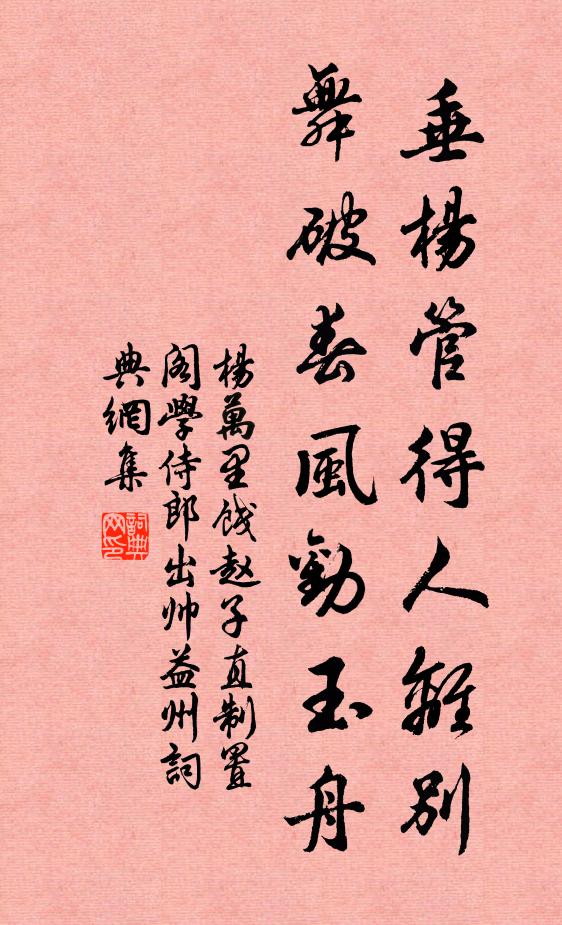 垂楊管得人離別
舞破春風勸玉舟
楊萬里餞赵子直制置
閣學侍郎出帅益州詞
典網集
詞典
网印